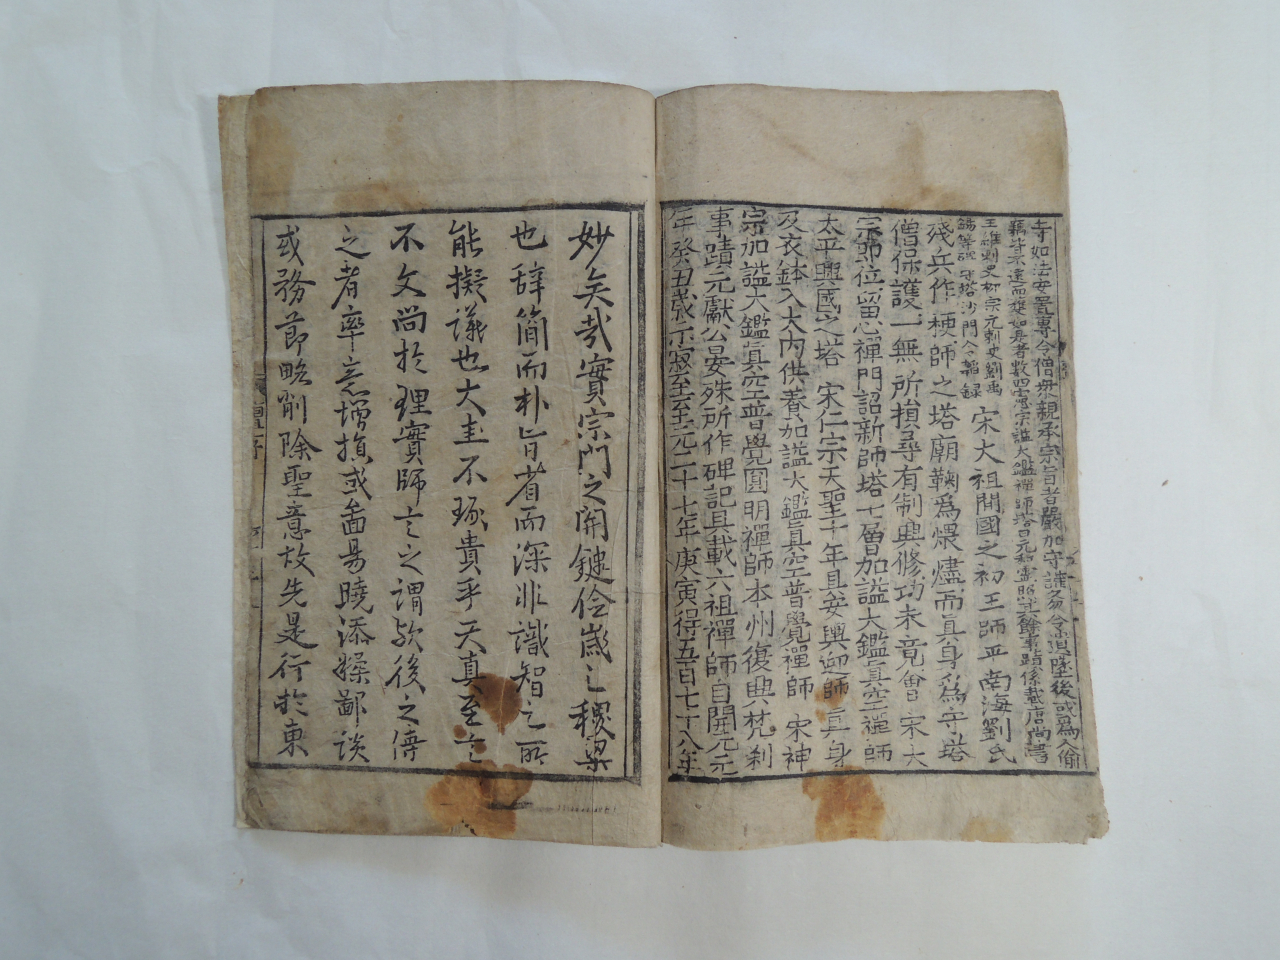 寺如法安置專令僧衆親承宗旨者嚴加守護勿令遺墜後或爲人偷
竊皆不遠而獲如是者數四宣宗謚大鑑禪師塔曰元和靈照其餘事蹟係載唐尚書
王維刺史柳宗元刺史劉禹
錫等碑守塔沙門令韜錄
宋太祖開國之初王師平南海劉氏
殘兵作梗師之塔廟鞠爲煨燼而眞身爲守塔
僧保護一無所損尋有制興修功未竟會宋太
宗卽位留心禪門詔新師塔七層加謚大鑑眞空禪師
太平興國之塔 宋仁宗天聖十年具安輿迎師眞身
及衣鉢入大內供養加謚大鑑眞空普覺禪師 宋神
宗加謚大鑑眞空普覺圓明禪師本州復興梵刹
事蹟元獻公晏殊所作碑記具載六祖禪師自開元元
年癸丑歲示寂至至元二十七年庚寅得五百七十八年
妙矣哉實宗門之關鍵儉歲之稷粱
也辞簡而朴旨省而深非識智之所
能擬議也大圭不琢貴乎天真至言
不文尚於理實師言之謂歟後之傳
之者率意增損或畐易曉添糅鄙談
或務節略削除聖意故先是行於東